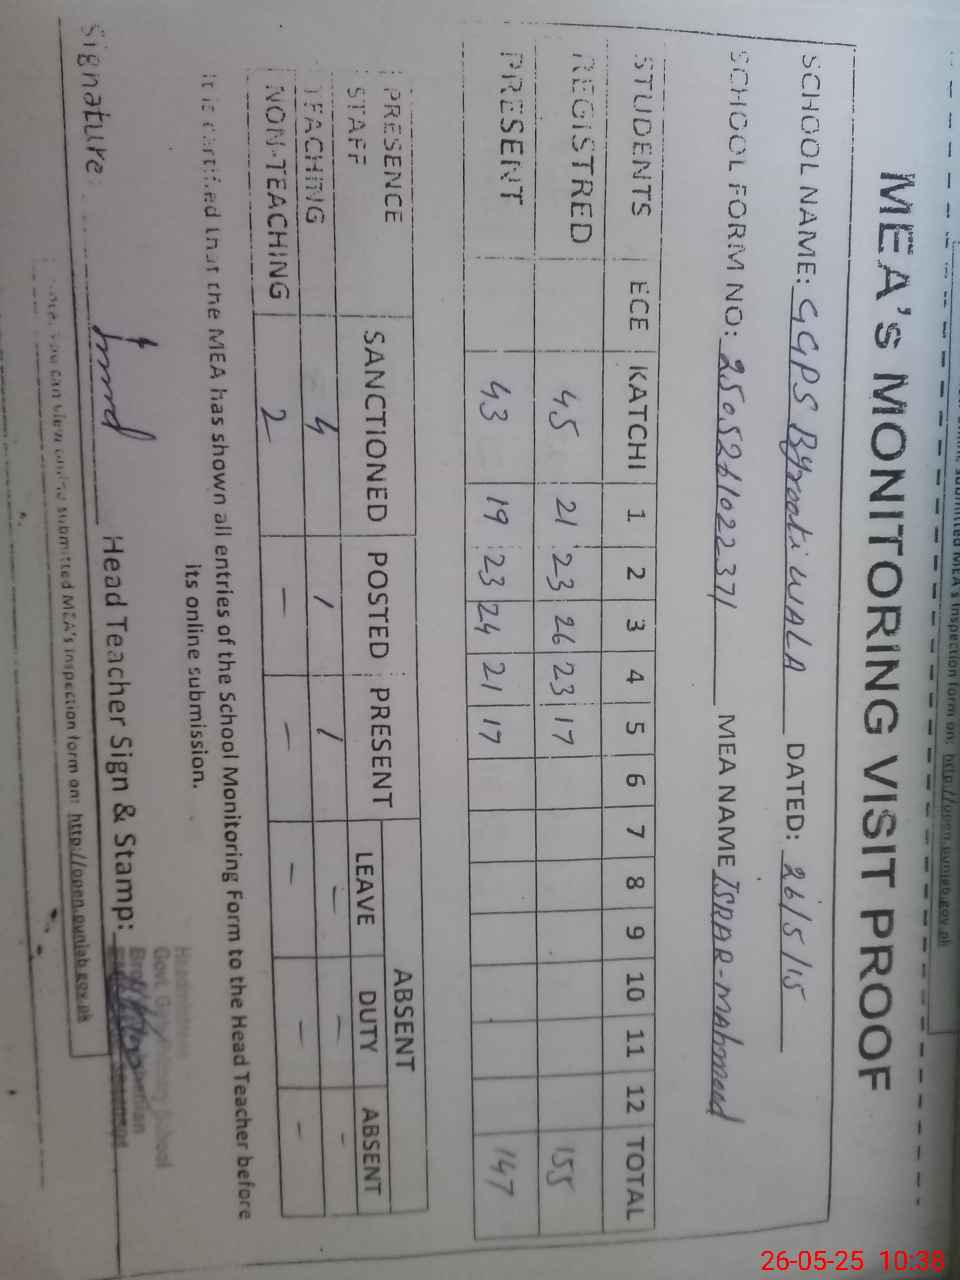 MEA's MONITORING VISIT PROOF
SCHOOL NAME: GGPS WALA DATED: 26/5/15
SCHOOL FORM NO: MEA NAME ISRAR-Mahmood
STUDENTS ECE KATCHI 1 2 3 4 5 6 7 8 9 10 11 12 TOTAL
REGISTRED 45 21 23 26 23 17 155
PRESENT 43 19 23 24 21 17 147
PRESENCE STAFF SANCTIONED POSTED PRESENT ABSENT
LEAVE DUTY ABSENT
TEACHING 4 / / - - -
NON-TEACHING 2 - - - - -
It is certified that the MEA has shown all entries of the School Monitoring Form to the Head Teacher before
its online submission.
Signature: Head Teacher Sign & Stamp:
Headmistress
Govt. School
You can view online submitted MEA's inspection form on: http://open.punjab.gov.pk
submitted MEA's inspection form on: http://open.punjab.gov.pk
26-05-25 10:38